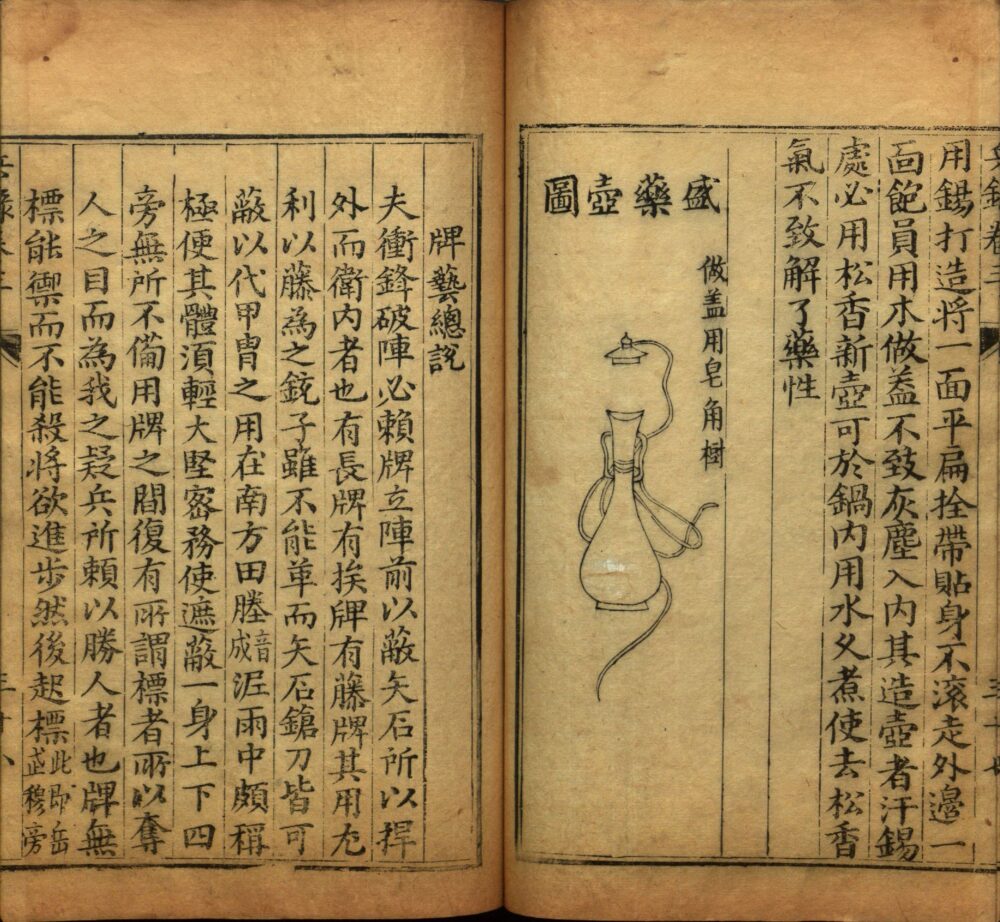 兵錄卷三
用錫打造將一面平扁拴帶貼身不滾走外邊一
面飽員用木做葢不致灰塵入內其造壺者汗錫
處必用松香新壺可於鍋內用水久煮使去松香
氣不致解了藥性
做盖用皂角樹
盛藥壺圖
牌藝總說
夫衝鋒破陣必賴牌立陣前以蔽矢石所以捍
外而衛內者也有長牌有挨牌有藤牌其用尤
利以藤為之銃子雖不能革而矢石鎗刀皆可
蔽以代甲冑之用在南方田塍音成泥雨中頗稱
極便其體須輕大堅密務使遮蔽一身上下四
旁無所不備用牌之間復有所謂標者所以奪
人之目而為我之疑兵所賴以勝人者也牌無
標能禦而不能殺將欲進步然後起標此即岳武穆旁